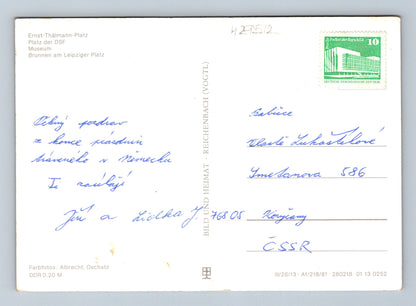 Ernst-Thälmann-Platz
Platz der DSF
Museum
Brunnen am Leipziger Platz
10
Pěkný pozdrav
z konce prázdnin
tráveného v Německu
Ti zasílají
Jiří a Liduška J.
BILD UND HEIMAT · REICHENBACH (VOGTL)
Babičce
Vlastě Lukaštíkové
Smetanova 586
768 05 Koryčany
ČSSR
Farbfotos: Albrecht, Oschatz
DDR 0,20 M
IV/26/13 · A1/218/81 · 260218 01 13 0252